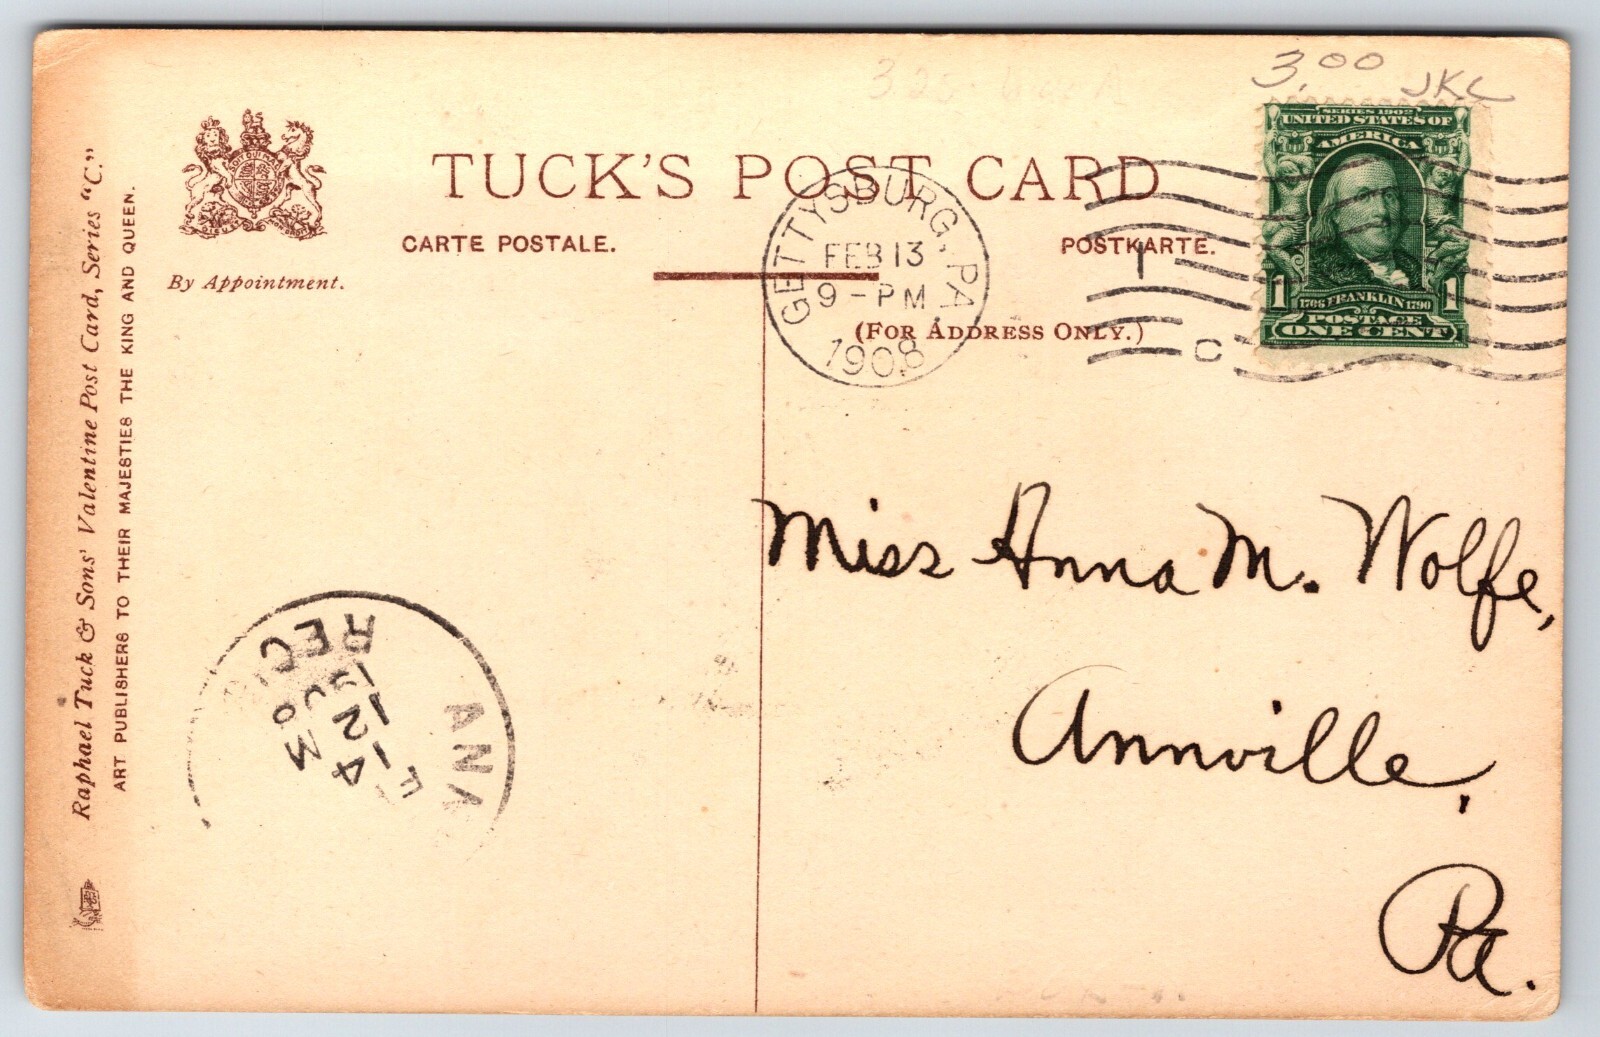 3.00 JKC
TUCK'S POST CARD
CARTE POSTALE.
POSTKARTE.
By Appointment.
(FOR ADDRESS ONLY.)
GETTYSBURG, PA.
FEB 13
9 - PM
1908
1
C
SERIES 1902
UNITED STATES OF
AMERICA
1 1
1706 FRANKLIN 1790
POSTAGE
ONE CENT
Raphael Tuck & Sons' Valentine Post Card, Series "C."
ART PUBLISHERS TO THEIR MAJESTIES THE KING AND QUEEN.
Miss Anna M. Wolfe,
Annville,
Pa.
ANN
F
14
12 M
REC